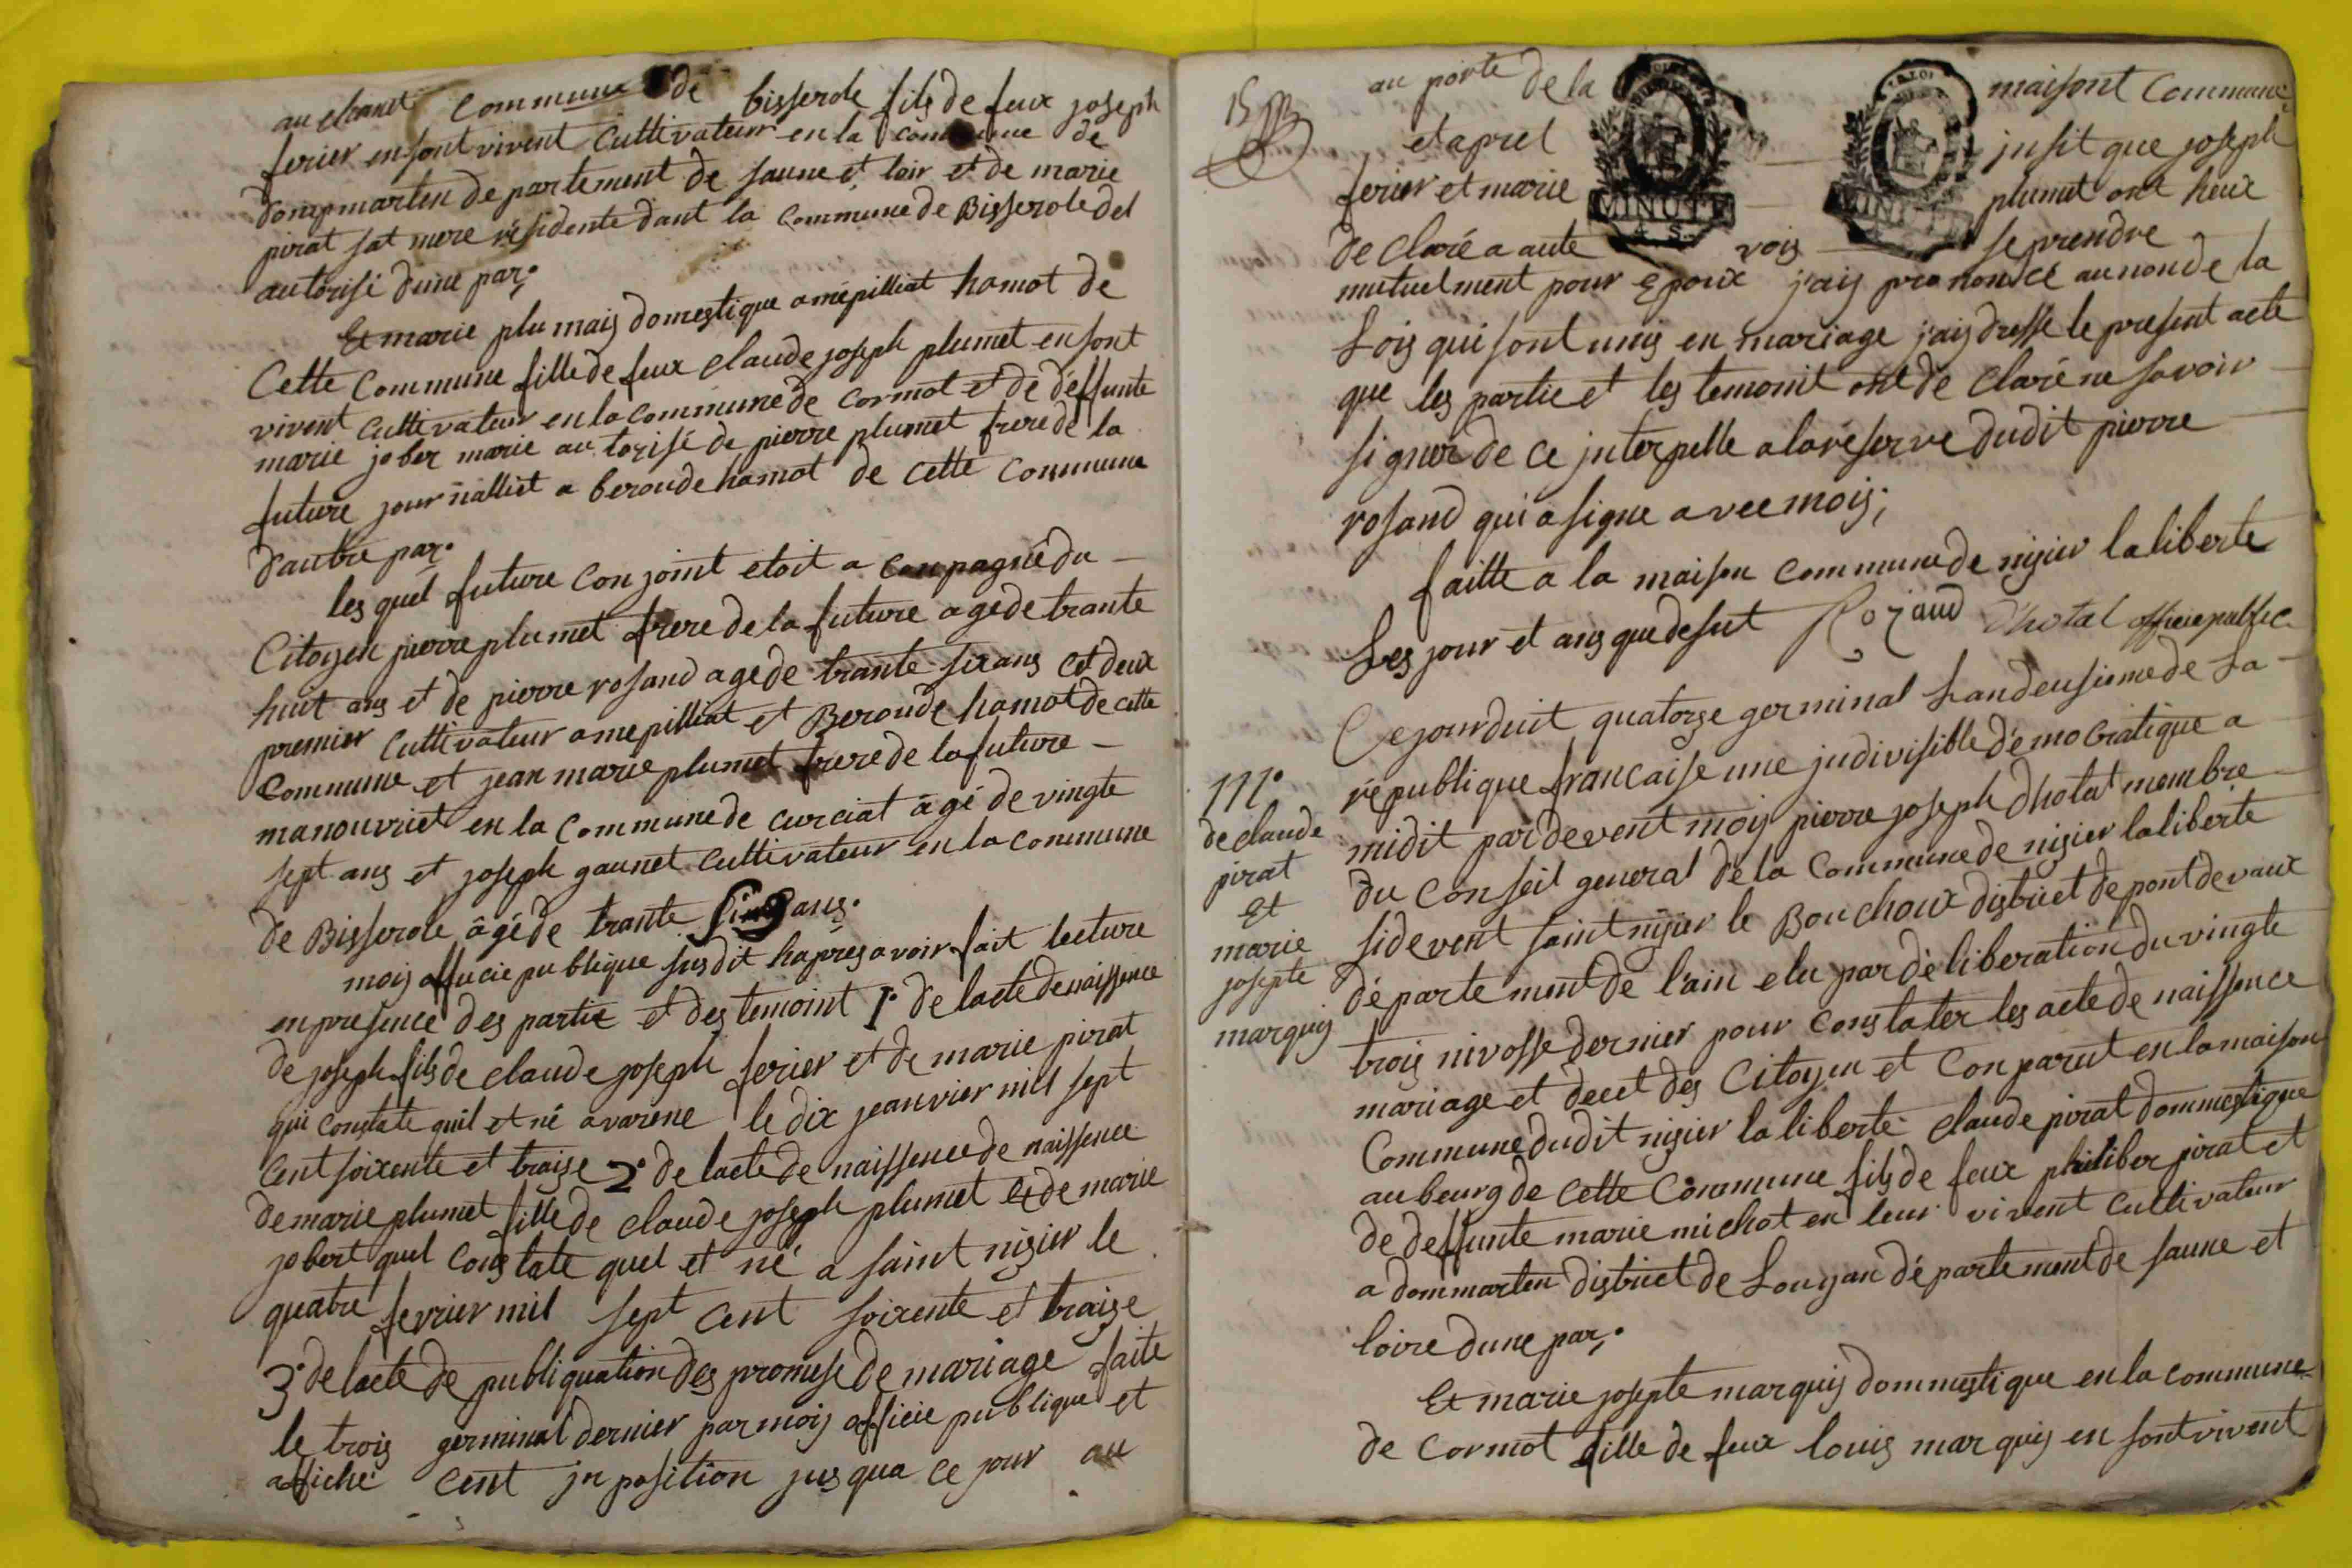 au chanet commune de bisserole fils de feux joseph
ferier en sont vivent cultivateur en la commune de
dompmarten departement de saune et loir et de marie
pirat sat mere résidente dant la commune de Bisserole del
autorisé dune par;
Et marie plumais domestique a mépilliat hamot de
Cette Commune fille de feux claude joseph plumet en sont
vivent cultivateur en la commune de cormot et de déffunte
marie jober marie autorisé de pierre plumet frere de la
future journalliet a beroude hamot de cette commune
dautre par.
les quel future conjoint etoit a conpagné du
Citoyen pierre plumet frere de la future age de trante
huit ans et de pierre rosand age de trante six ans et deux
premier cultivateur a mepilliat et Beroude hamot de cette
commune et jean marie plumet frere de la future
manouvriet en la commune de curciat âgé de vingte
sept ans et joseph gaunet cultivateur en la commune
de Bisserole âgé de trante Cinq ans.
mois afficie publique susdit hapres avoir fait lecture
en presence des partie et des temoint 1° de lacte de naissence
de joseph fils de claude joseph ferier et de marie pirat
qui constate quil et né a varene le dix jeanvier mils sept
Cent soixente et traize 2° de lacte de naissence de naissence
de marie plumet fille de claude joseph plumet et de marie
jobert quel constate quel et né a saint nizier le
quatre fevrier mil sept Cent soixente et traize
3° de lacte de publiquation des promese de mariage faite
le trois germinal dernier par mois afficie publique et
affiché cent jn position jus qua ce jour au
15
au porte de la maisont Commune
et apret jusit que joseph
ferier et marie plumet ont heux
de claré a aute vois se prendre
mutuelment pour Epoux j'ais prononcé au non de la
Lois qui sont unis en mariage j'ais dressé le present acte
que les partie et les temonit ont de claré ne savoir
signer de ce jnterpelle a la réserve dudit pierre
rosand qui a signe avec mois;
faitte a la maison commune de nizier la liberte
Les jour et ans que desut Rozand Dhotal officie public
MINUTE
MINUTE
LA LOI
111°
de claude
pirat
Et
marie
josepte
marquis
Ce jourduit quatorze germinal Landeusieme de La
république francaise une jndivisible démocratique a
midit par devent mois pierre joseph dhotal membre
du Conseil general de la Commune de nizier la liberte
sidevent saint nizier le Bouchoux district de pont devaux
département de l'ain elu par déliberation du vingte
trois nivosse dernier pour constater les acte de naissence
mariage et decet des Citoyen et Conparut en la maison
Commune dudit nizier la liberté claude pirat dommestique
au beurg de cette Commune fils de feux philiber pirat et
de deffunte marie michot en leur vivent cultivateur
a dommarten district de Louyan département de saune et
loire dune par;
Et marie josepte marquis dommestique en la commune
de cormot fille de feux louis marquis en sont vivent